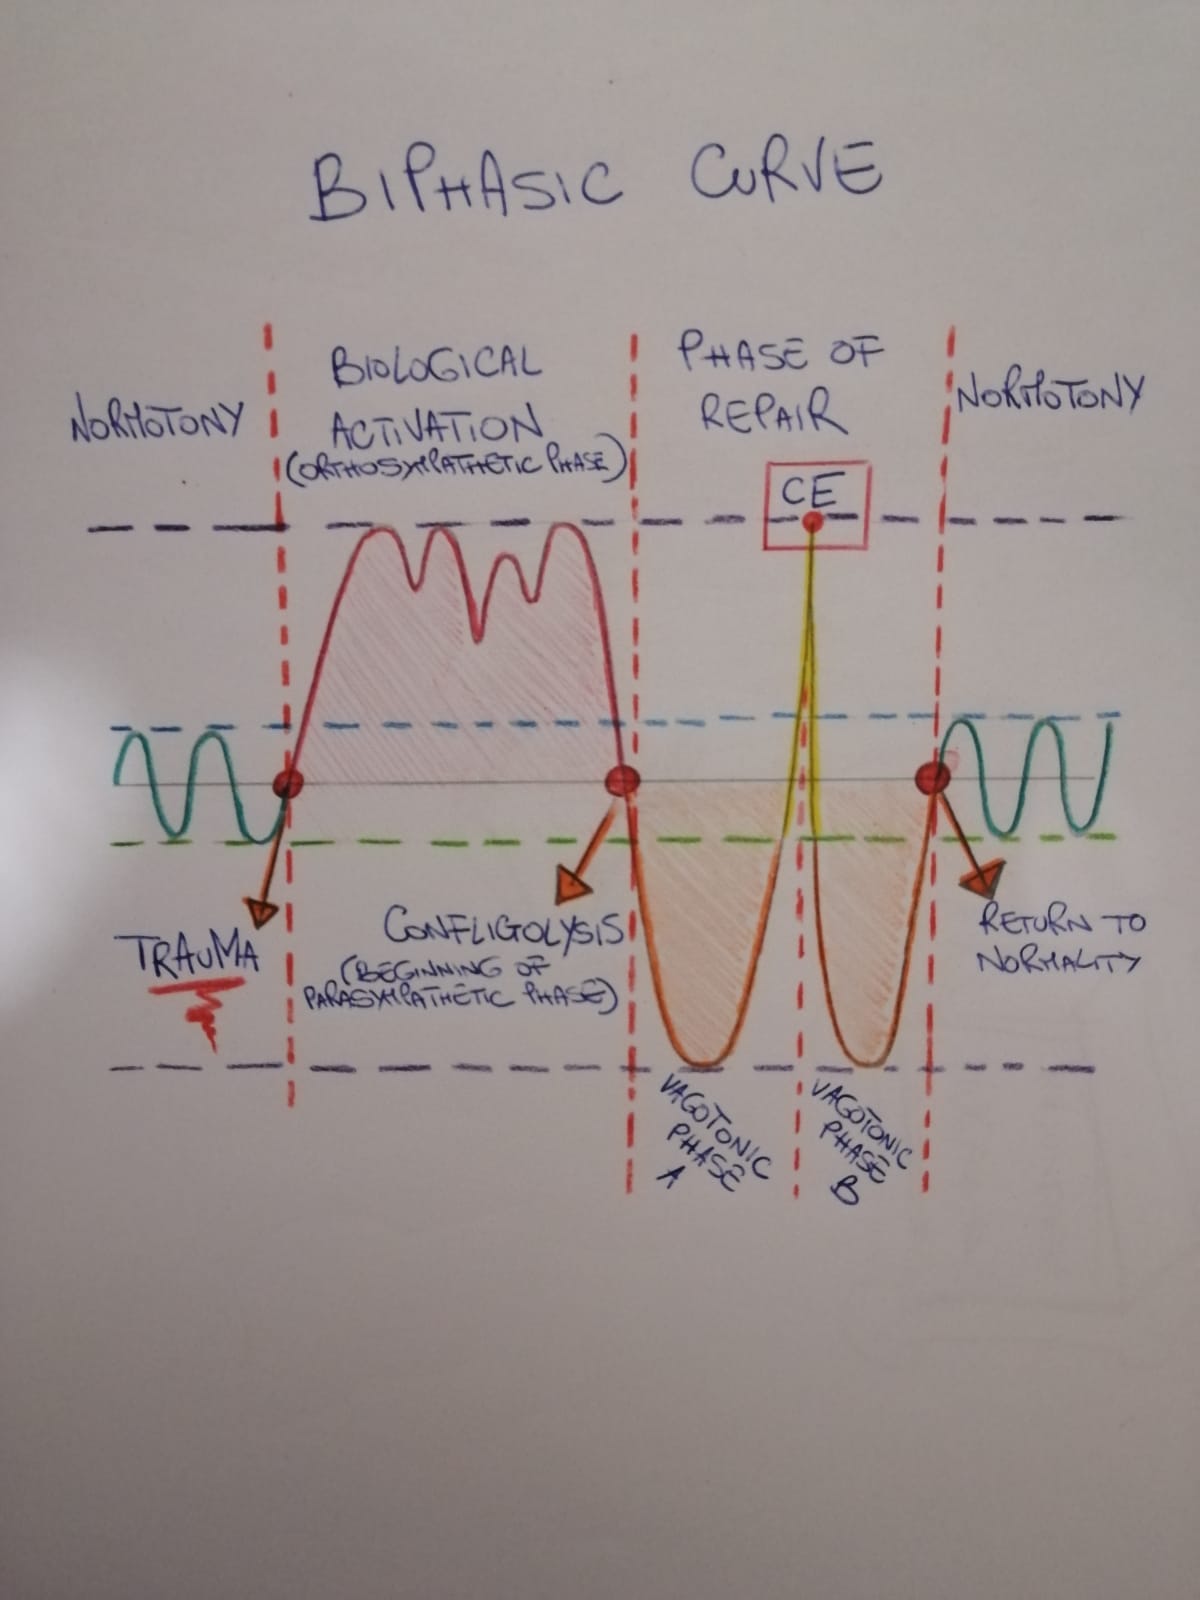 BIPHASIC CURVE
NORMOTONY
BIOLOGICAL
ACTIVATION
(ORTHOSYMPATHETIC PHASE)
PHASE OF
REPAIR
NORMOTONY
CE
TRAUMA
CONFLIGOLYSIS
(BEGINNING OF
PARASYMPATHETIC PHASE)
RETURN TO
NORMALITY
VAGOTONIC
PHASE
A
VAGOTONIC
PHASE
B